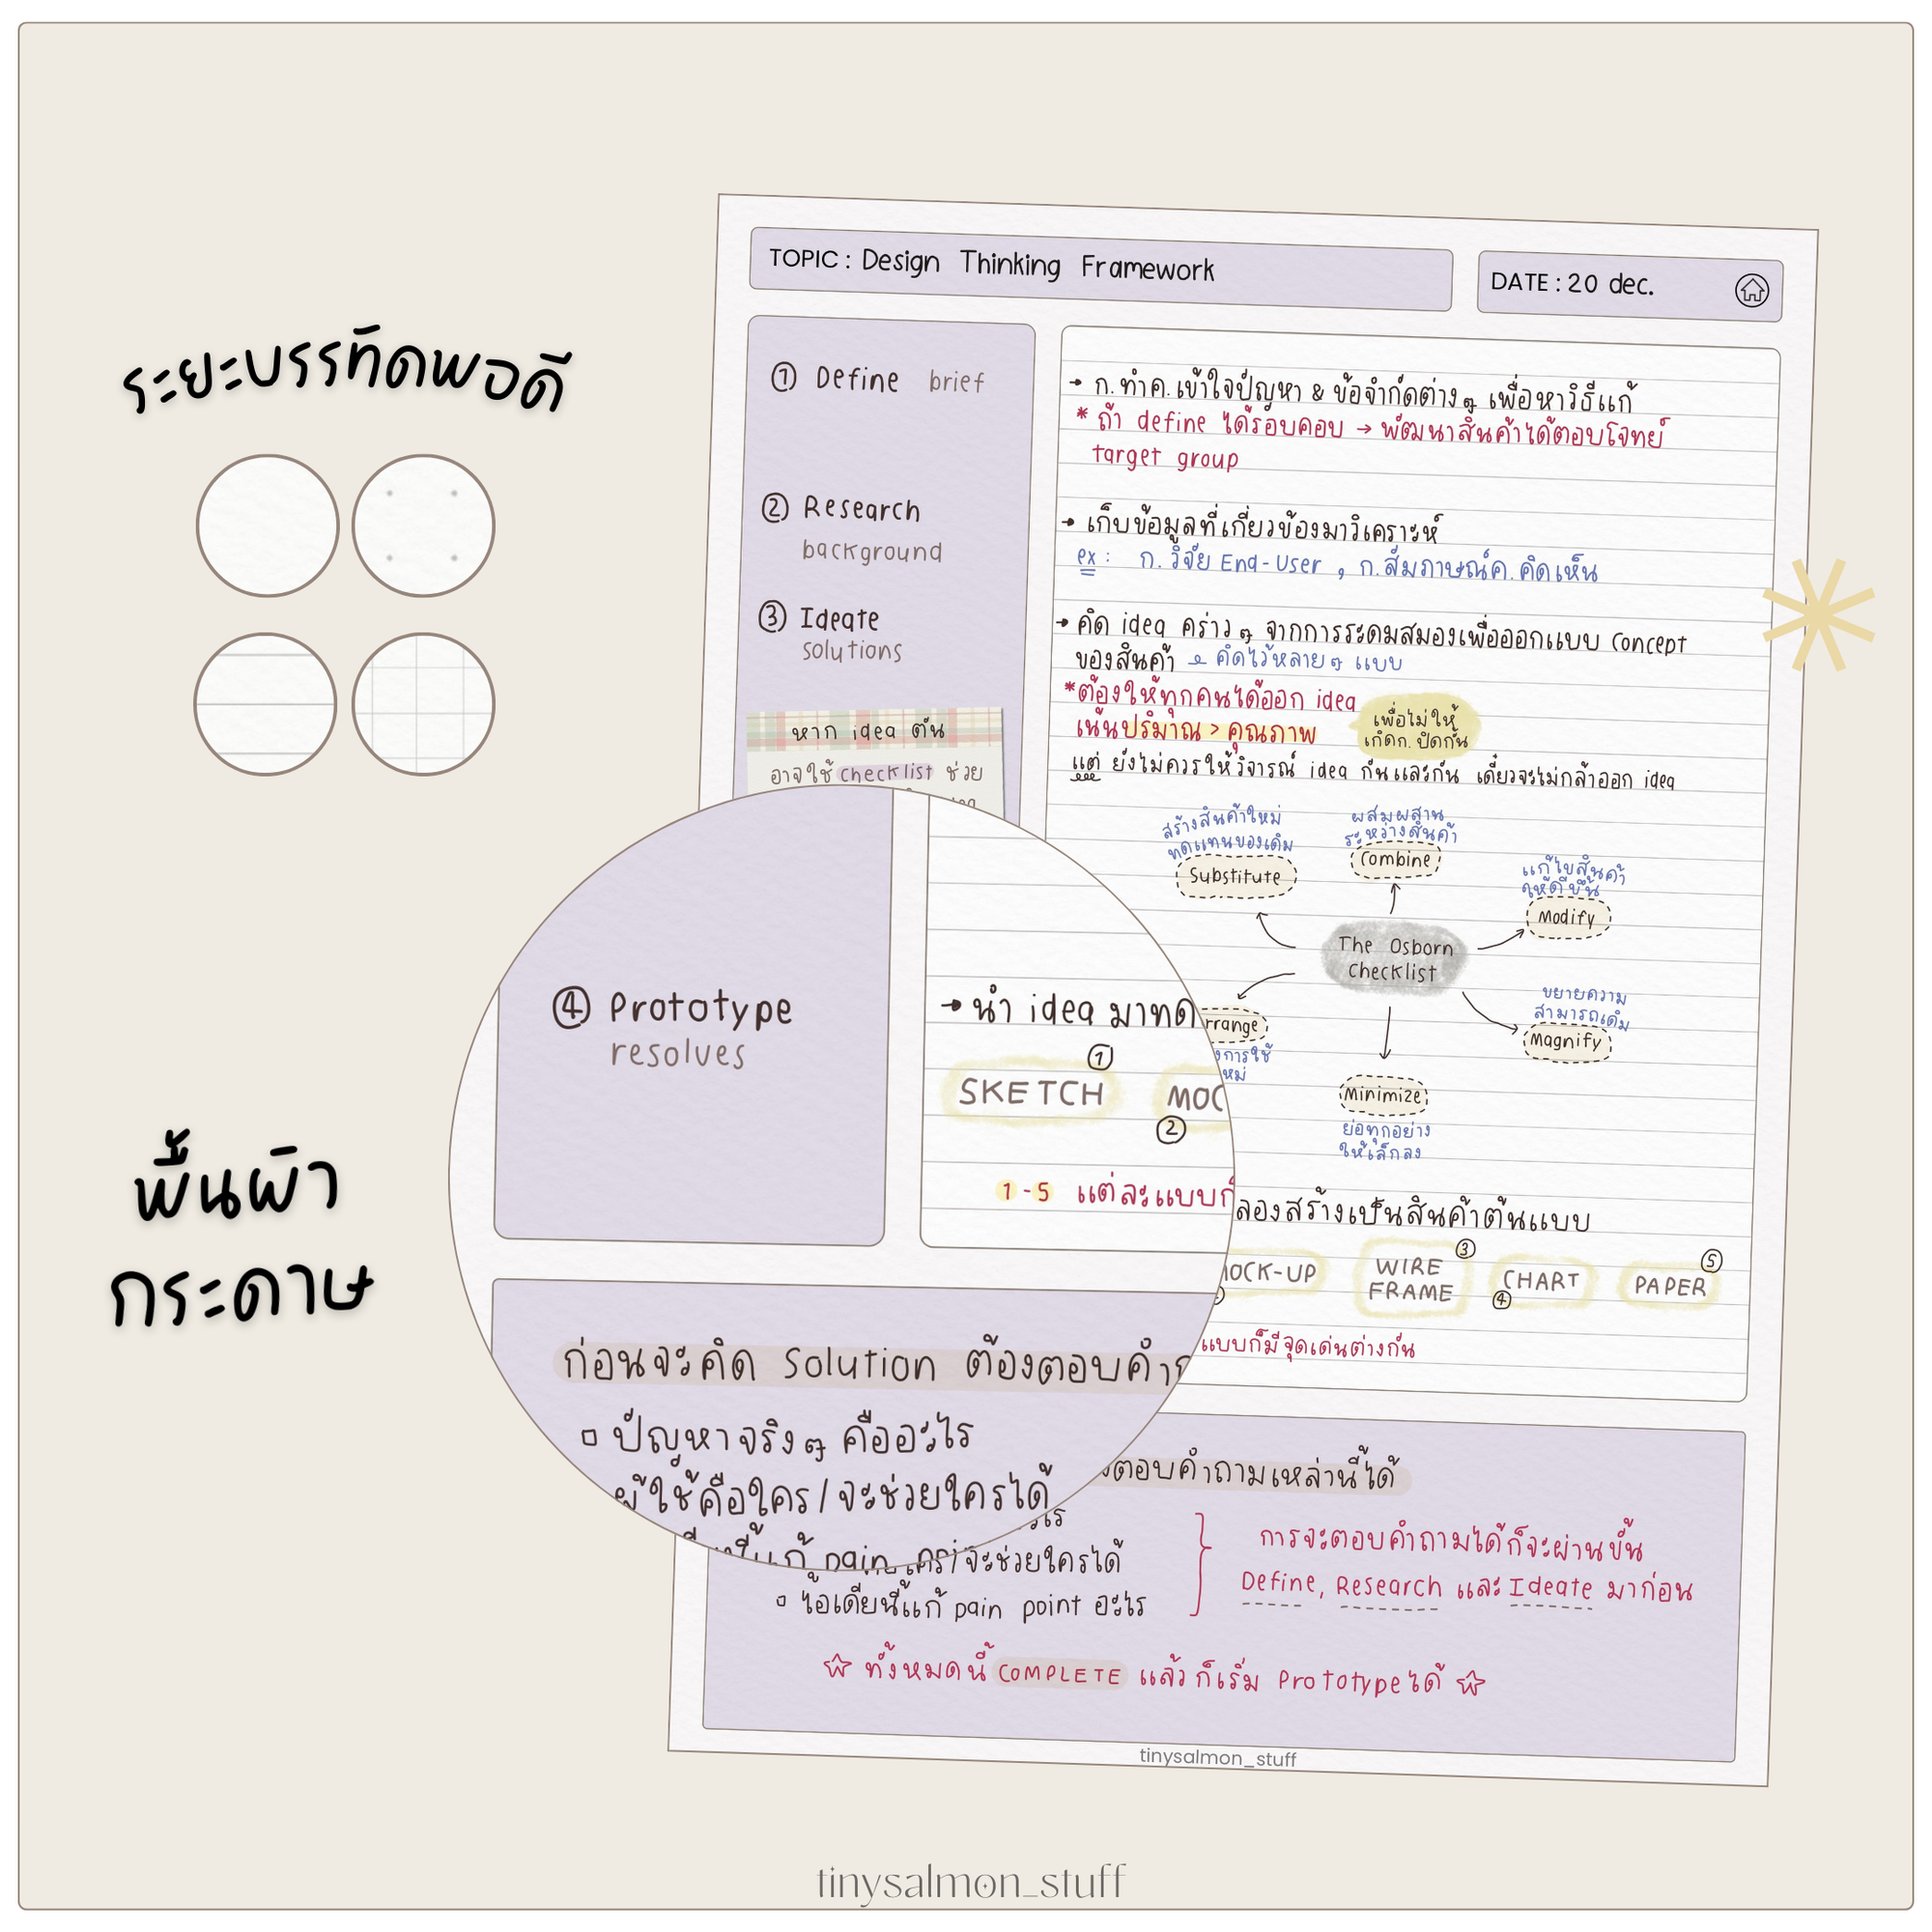 ระยะบรรทัดพอดี
พื้นผิว
กระดาษ
TOPIC : Design Thinking Framework
DATE : 20 dec.
① Define brief
→ ก.ทำค.เข้าใจปัญหา & ข้อจำกัดต่างๆ เพื่อหาวิธีแก้
* ถ้า define ได้รอบคอบ → พัฒนาสินค้าได้ตอบโจทย์
target group
② Research
background
→ เก็บข้อมูลที่เกี่ยวข้องมาวิเคราะห์
ex : ก.วิจัย End-User , ก.สัมภาษณ์ค.คิดเห็น
③ Ideate
solutions
→ คิด idea คร่าวๆ จากการระดมสมองเพื่อออกแบบ Concept
ของสินค้า คิดไว้หลายๆ แบบ
*ต้องให้ทุกคนได้ออก idea
เน้นปริมาณ > คุณภาพ
เพื่อไม่ให้
เกิดก.ปิดกั้น
แต่ ยังไม่ควรให้วิจารณ์ idea กันและกัน เดี๋ยวจะไม่กล้าออก idea
หาก idea ตัน
อาจใช้ checklist ช่วย
The Osborn
Checklist
สร้างสินค้าใหม่
ทดแทนของเดิม
Substitute
ผสมผสาน
ระหว่างสินค้า
Combine
แก้ไขสินค้า
ให้ดีขึ้น
Modify
ขยายความ
สามารถเดิม
Magnify
Minimize
ย่อทุกอย่าง
ให้เล็กลง
rrange
การใช้
ใหม่
④ Prototype
resolves
→ นำ idea มาทด
ลองสร้างเป็นสินค้าต้นแบบ
① SKETCH
② MOC
OCK-UP
③ WIRE
FRAME
④ CHART
⑤ PAPER
1-5 แต่ละแบบก็
แบบก็มีจุดเด่นต่างกัน
ก่อนจะคิด Solution ต้องตอบคำถ
ตอบคำถามเหล่านี้ได้
▫ ปัญหาจริงๆ คืออะไร
ผู้ใช้คือใคร/จะช่วยใครได้
นี้แก้ pain
ใคร/จะช่วยใครได้
▫ ไอเดียนี้แก้ pain point อะไร
การจะตอบคำถามได้ก็จะผ่านขั้น
Define, Research และ Ideate มาก่อน
☆ ทั้งหมดนี้ COMPLETE แล้ว ก็เริ่ม Prototype ได้ ☆
tinysalmon_stuff
tinysalmon_stuff